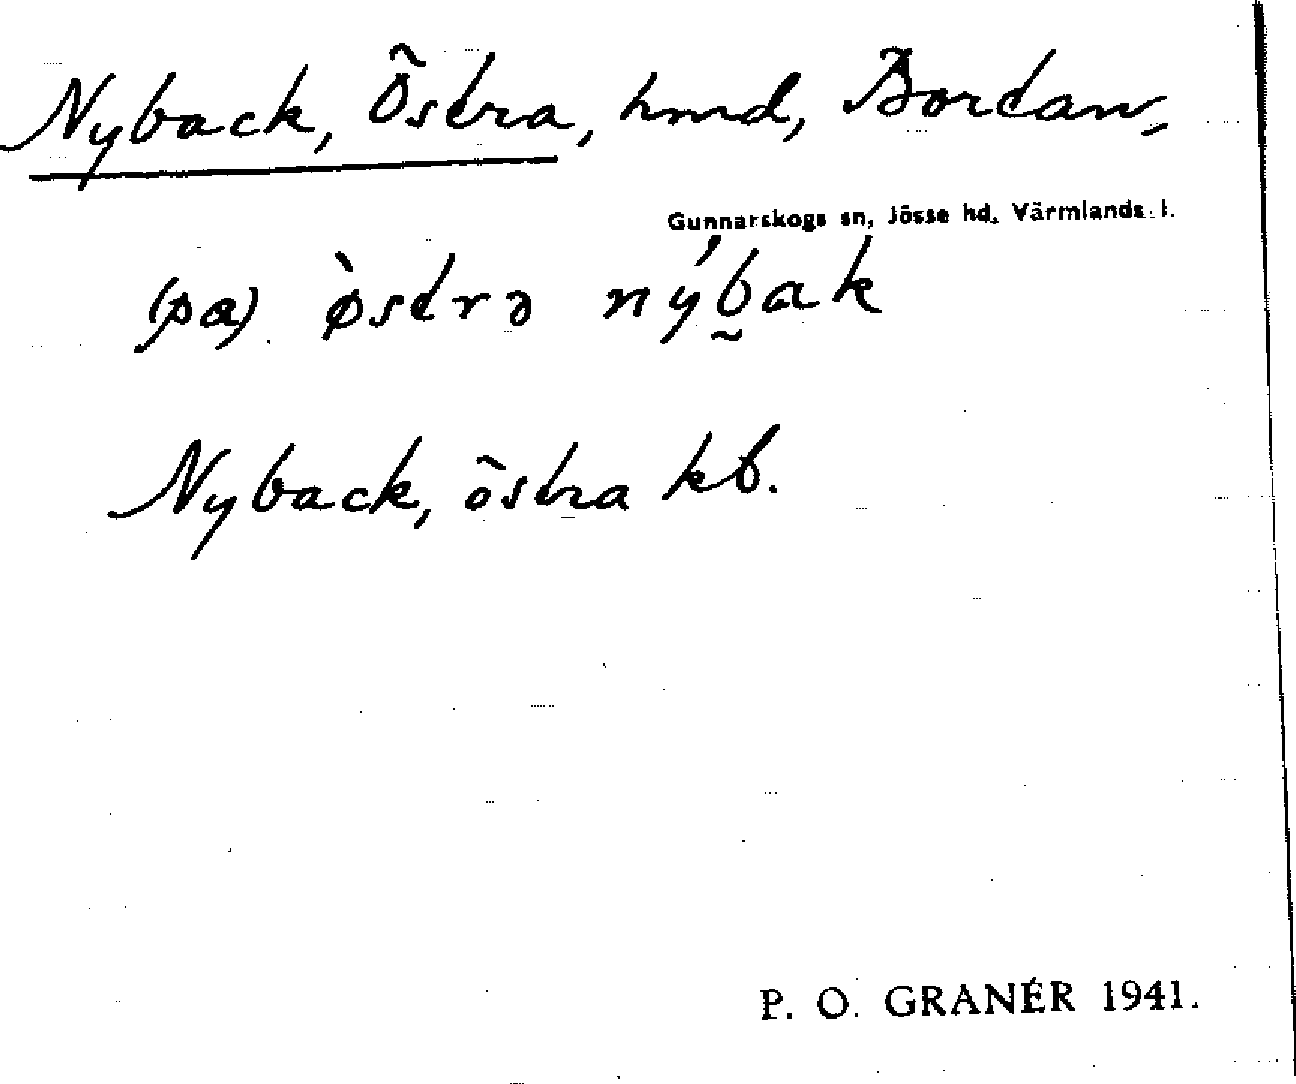 Nyback, Östra, hmd, Bordan,
Gunnarskogs sn, Jösse hd, Värmlands l.
(pa) ø̀strə nýb̰ak
Nyback, östra kb.
P. O. GRANÉR 1941.